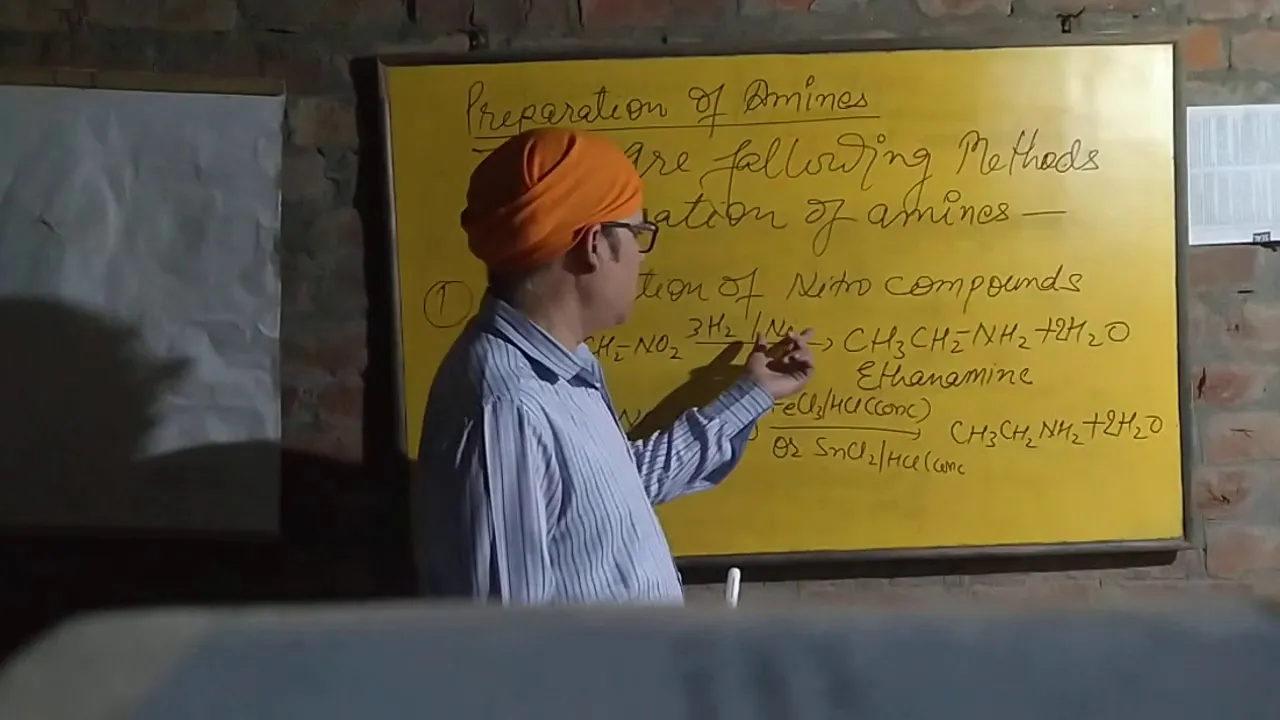 Preparation of Amines
are fallowing Methods
ation of amines —
① tion of Nitro compounds
CH2-NO2 3H2 / N → CH3CH2-NH2 + 2H2O
Ethanamine
FeCl3/HCl(conc) CH3CH2NH2+2H2O
Or SnCl2/HCl(conc